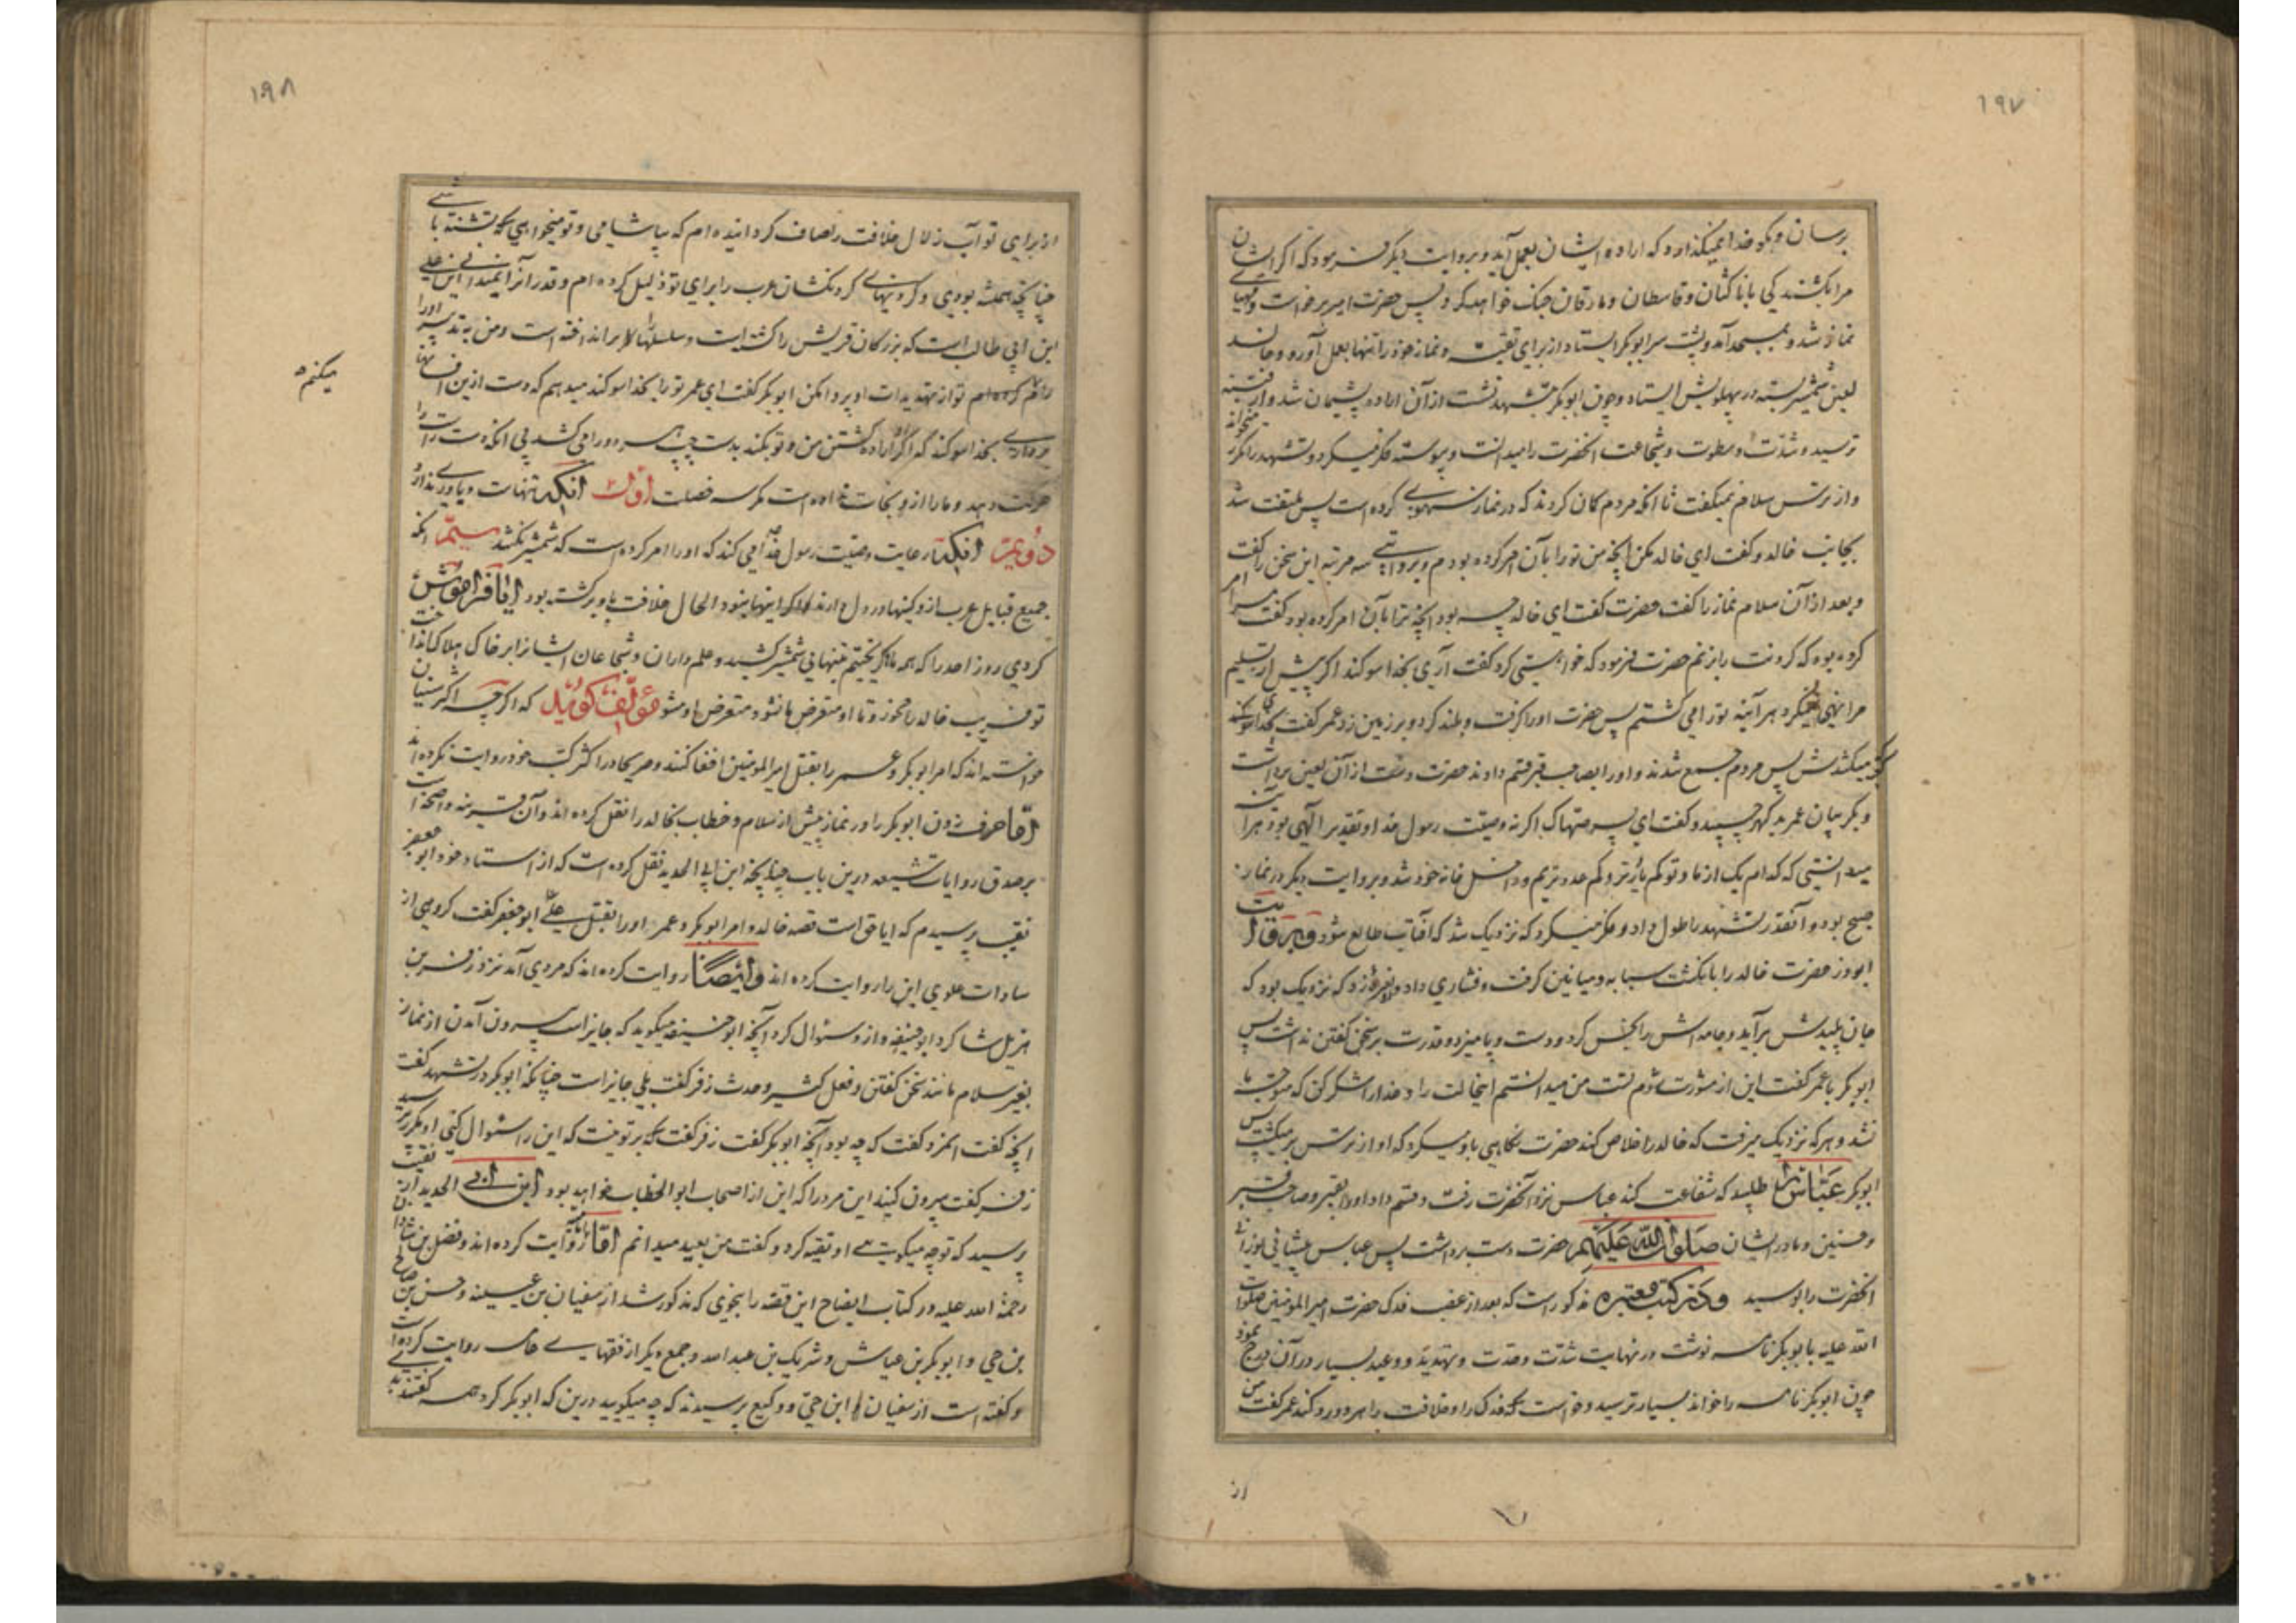 ۱۹۷
برسان و بگو خدا نمیگذارد که اراده ایشان بعمل آید و بروایت دیگر فرمود که اگر ایشان
مرا بکشند کی با ناکثان و قاسطان و مارقان جنک خواهد کرد پس حضرت امیر برخواست و مهیای
نماز شد و بمسجد آمد و پشت سر ابوبکر ایستاد از برای تقیه و نماز خود را تنها بعمل آورد و خالد
لعین شمشیر بسته در پهلویش ایستاد و چون ابوبکر بتشهد نشست از آن اراده پشیمان شد و از فتنه
ترسید و شدت و سطوت و شجاعت آنحضرت را میدانست و پیوسته فکر میکرد و تشهد را مکرر میخواند
و از ترس سلام نمیگفت تا آنکه مردم کمان کردند که در نماز سهوی کرده است پس ملتفت شد
بجانب خالد و کفت ای خالد مکن آنچه من تو را بآن امر کرده بودم و بروایتی سه مرتبه این سخن را کفت
و بعد از آن سلام نماز را کفت حضرت کفت ای خالد چه بود آنچه ترا بآن امر کرده بود کفت مرا امر
کرده بود که کردنت را بزنم حضرت فرمود که خواستی کرد کفت آری بخدا سوکند اکر پیش از تسلیم
مرا نهی نمیکرد هر آینه تو را می کشتم پس حضرت او را کرفت و بلند کرد و بر زمین زد عمر کفت بخدا سوکند
میکشدش پس مردم جمع شدند و او را بصاحب قبر قسم دادند حضرت دست از آن لعین برداشت
و بکریبان عمر چسپید و کفت ای پسر صهاک اکر نه وصیت رسول خدا و تقدیر الهی بود هر آینه
میدانستی که کدام یک از ما و تو کم یارتر و کم عددتریم و داخل خانه خود شد و بروایت دیکر در نماز
صبح بود و آنقدر تشهد را طول داد و فکر میکرد که نزدیک شد که آفتاب طالع شود و بروایت
ابوذر حضرت خالد را بانکشت سبابه و میانین کرفت و فشاری داد و نعره زد که نزدیک بود که
جان پلیدش برآید و جامه اش را نجس کرد و دست و پا میزد و قدرت بر سخن کفتن نداشت پس
ابوبکر با عمر کفت این از مشورت شوم تست من میدانستم این حالت را و خدا را شکر کن که متوجه ما
نشد و هر که نزدیک میرفت که خالد را خلاص کند حضرت نکاهی باو میکرد که او از ترس برمیکشت پس
ابوبکر عباس را طلبید که شفاعت کند عباس نزد آنحضرت رفت و قسم داد او را بقبر و صاحب قبر
و حسنین و مادر ایشان صلوات الله علیهم حضرت دست برداشت پس عباس پیشانی نورانی
آنحضرت را بوسید و در کتب معتبره مذکور است که بعد از غصب فدک حضرت امیر المؤمنین صلوات
الله علیه بابوبکر نامه نوشت در نهایت شدت و حدت و تهدید و وعید بسیار در آن درج نمود
چون ابوبکر نامه را خواند بسیار ترسید و خواست که فدک را و خلافت را هر دو رد کند عمر کفت من
از
۱۹۸
از برای تو آب زلال خلافت را صاف کردانیده ام که بیاشامی و تو میخواهی که تشنه باشی
چنانچه همیشه بودی و کردنهای کردنکشان عرب را برای تو ذلیل کرده ام و قدر آنرا نمیدانی این علی
ابن ابی طالب است که بزرکان قریش را کشته است و سلسلها را برانداخته است و من به تدبیر او را
رام کرده ام تو از تهدیدات او پروا مکن ابوبکر کفت ای عمر تو را بخدا سوکند میدهم که دست ازین افسانها
میکنم
برداری بخدا سوکند که اکر اراده کشتن من و تو بکند بدست چپ هر دو را می کشد بی آنکه دست راست را
حرکت دهد و ما را از او نجات نداده است مکر سه خصلت اول آنکه تنهاست و یاوری ندارد
دویم آنکه رعایت وصیت رسول خدا می کند که او را امر کرده است که شمشیر نکشد سیم آنکه
جمیع قبایل عرب از او کینها در دل دارند اکر اینها نبود الحال خلافت باو برکشته بود آیا فراموش
کردی روز احد را که همه ما کریختیم تنهایی شمشیر کشید و علمداران و شجاعان ایشانرا بر خاک هلاک انداخت
تو فریب خالد را مخور و تا او متعرض ما نشود متعرض او مشو مؤلف کوید که اکرچه اکثر سنیان
خواسته اند که امر ابوبکر و عمر را بقتل امیر المومنین اخفا کنند و صریحا در اکثر کتب خود روایت نکرده اند
اما حرف زدن ابوبکر را در نماز پیش از سلام و خطاب بخالد را نقل کرده اند و آن قرینه واضحه است
بر صدق روایات شیعه درین باب چنانچه ابن ابی الحدید نقل کرده است که از استاد خود ابو جعفر
نقیب پرسیدم که ایا حق است قصه خالد و امر ابوبکر و عمر او را بقتل علی ابو جعفر کفت کروهی از
سادات علوی این را روایت کرده اند و ایضا روایت کرده اند که مردی آمد نزد زفر بن
هزیل شاکرد ابو حنیفه و از او سئوال کرد آنچه ابو حنیفه میکوید که جایز است بیرون آمدن از نماز
بغیر سلام مانند سخن کفتن و فعل کثیر و حدث زفر کفت بلی جایز است چنانکه ابوبکر در تشهد کفت
آنچه کفت آنمرد کفت که چه بود آنچه ابوبکر کفت زفر کفت که بر تو نیست که این را سئوال کنی او مکرر پرسید
زفر کفت بیرون کنید این مرد را که این از اصحاب ابو الخطاب خواهد بود ابن ابی الحدید از نقیب
پرسید که تو چه میکویی او تقیه کرد و کفت من بعید میدانم اما امامیه روایت کرده اند و فضل بن شاذان
رحمة الله علیه در کتاب ایضاح این قصه را بنحوی که مذکور شد از سفیان بن عیینه و حسن بن صالح
بن حی و ابوبکر بن عیاش و شریک بن عبد الله و جمع دیکر از فقهای عامه روایت کرده است
و کفته است از سفیان و ابن حی و وکیع پرسیدند که چه میکویید درین که ابوبکر کرد همه کفتند بدی